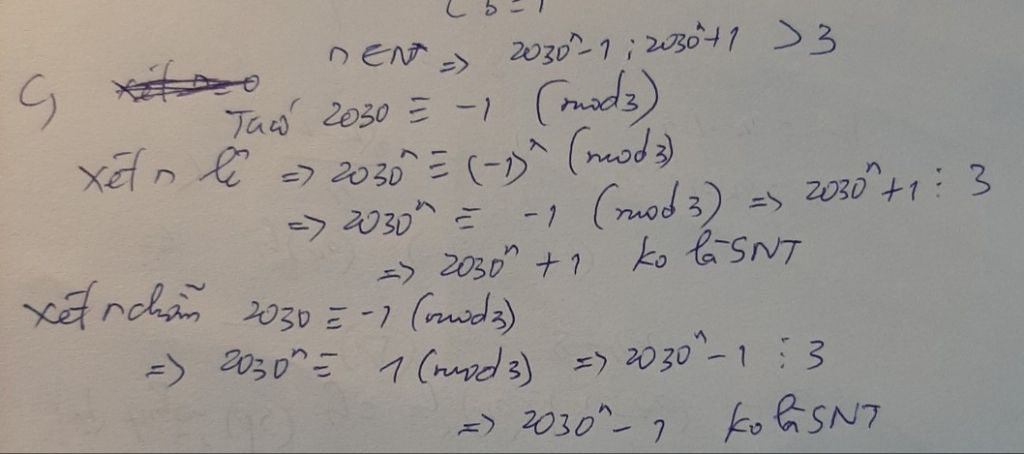 n ∈ N* => 2030ⁿ - 1 ; 2030ⁿ + 1 > 3
c,
Ta có 2030 ≡ -1 (mod 3)
xét n lẻ => 2030ⁿ ≡ (-1)ⁿ (mod 3)
=> 2030ⁿ ≡ -1 (mod 3) => 2030ⁿ + 1 ⋮ 3
=> 2030ⁿ + 1 ko là SNT
xét n chẵn 2030 ≡ -1 (mod 3)
=> 2030ⁿ ≡ 1 (mod 3) => 2030ⁿ - 1 ⋮ 3
=> 2030ⁿ - 1 ko là SNT